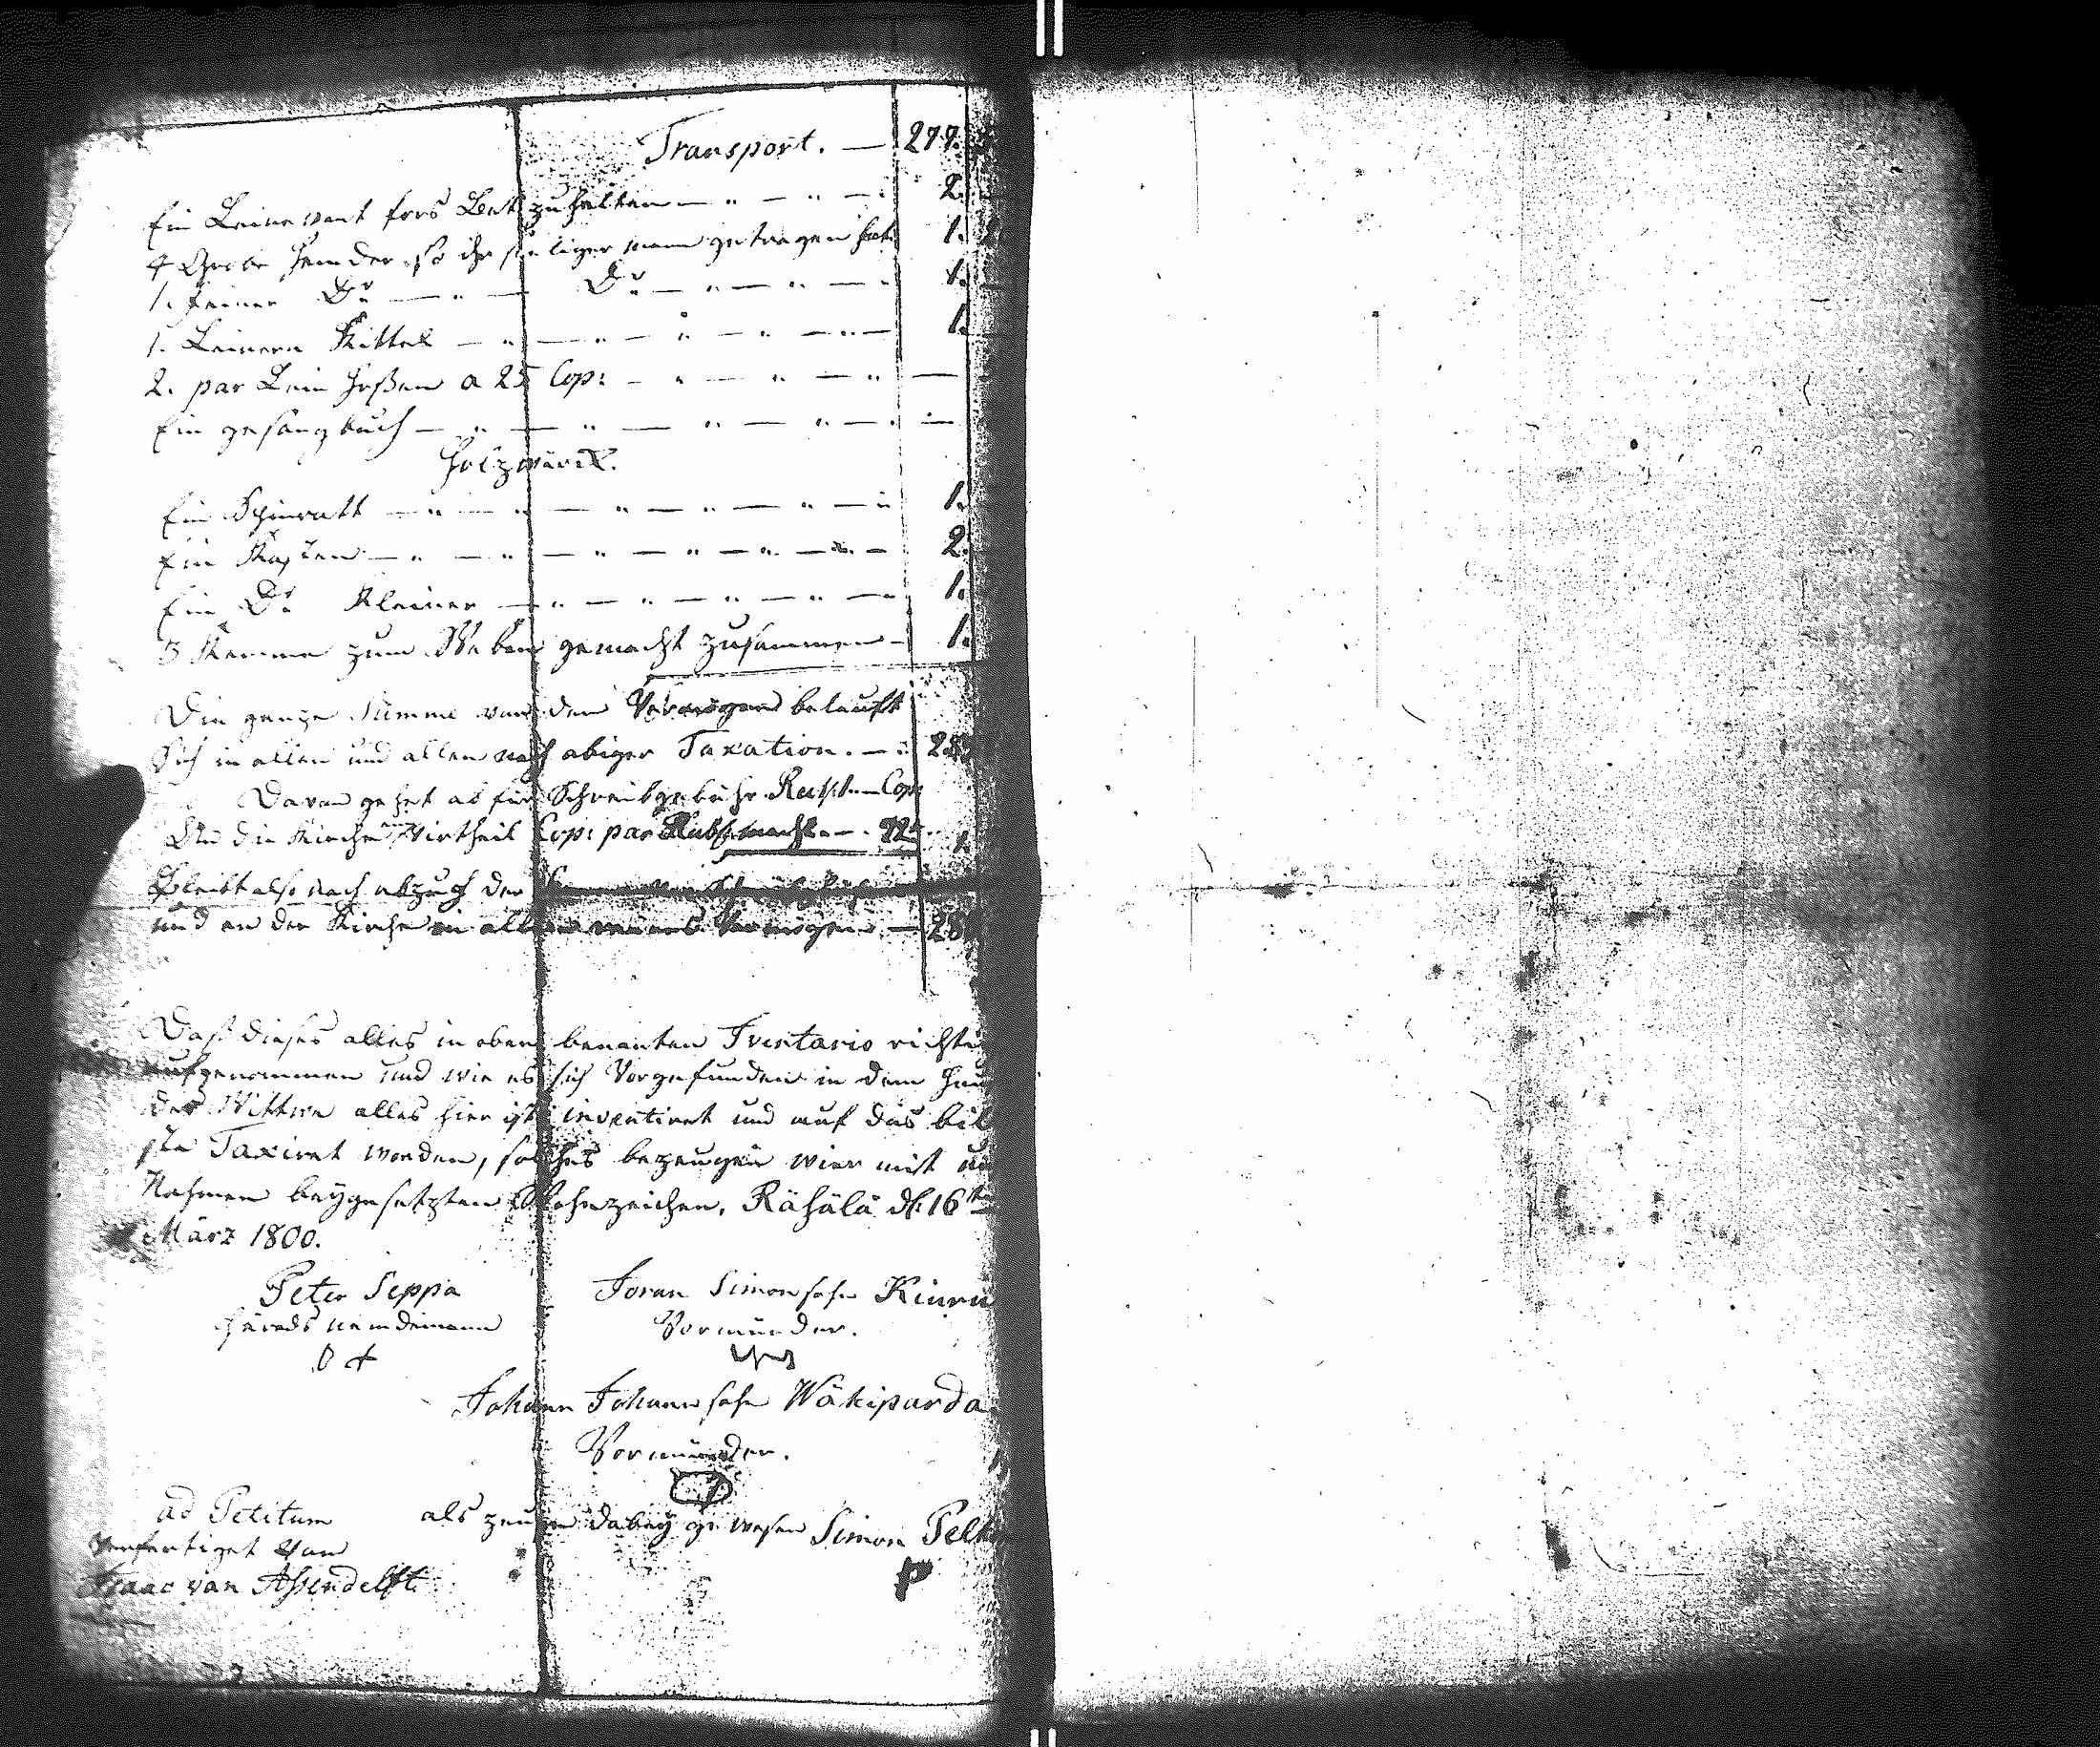 Transport. — 277.
Ein Leinewant fors Bet zu halten — " — " — 2.
4 Grobe Hemder so ihr seeliger mann getragen hat 1.
1. feiner Do — " — Do — " — " — 1.
1. Leinern Kittel — " — " — " — " — 1.
2. par Lein Hoßen a 25 Cop: — " — " — " —
Ein gesangbuch — " — " — " — " —
Holzwärck.
Ein Spinratt — " — " — " — " — " 1.
Ein Kasten — " — " — " — " — " — 2.
Ein Do Kleiner — " — " — " — " — 1.
3 Kemme zum Weben gemacht zusammen — 1.
Die ganze Summe von den Vermögen belauft
Sich in allen und allen nach abiger Taxation. — 28
Davon gehet ab für Schreibgebühr Cop:
An die Kirche Virtheil Cop: par
Bleibt also nach abzuch der
und an der Kirche in allen reines Vermögen — 28
Daß dieses alles in oben benanten Iventario richti
aufgenommen und wie es sich Vorgefunden in dem Hau
der Wittwe alles hier ist inventiret und auf das bil
ste Taxiret worden, solches bezeugen wier mit un
Nahmen beygesetzten Wahrzeichen. Rähälä d. 16te
März 1800.
Peter Seppa
Härads nemdemann
Joran Simon sohn Kiuru
Vormünder.
Johann Johann sohn Wäkiparda
Vormünder.
ad Petitum
verfertiget von
Isaac van Assendelft.
als zeugen dabey gewesen Simon Pelt
P